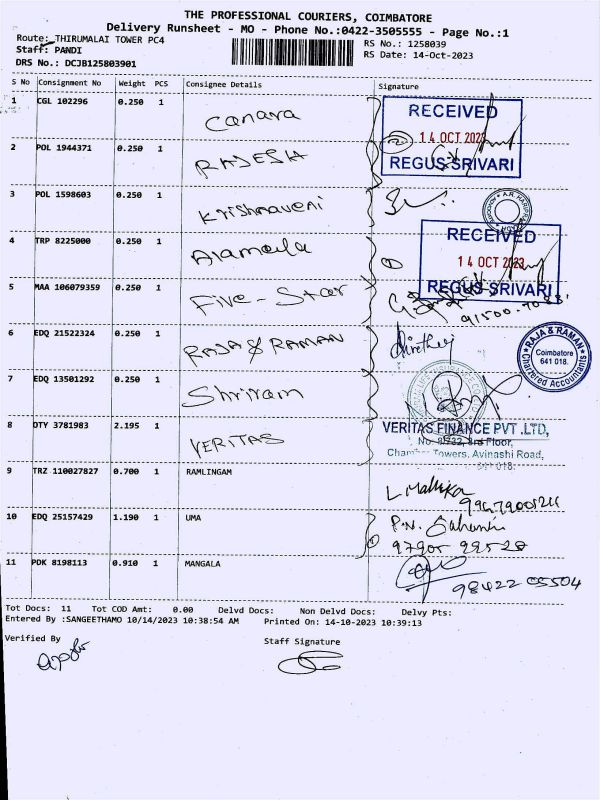 THE PROFESSIONAL COURIERS, COIMBATORE
Delivery Runsheet - MO - Phone No.:0422-3505555 - Page No.:1
Route: THIRUMALAI TOWER PC4
RS No.: 1258039
Staff: PANDI
RS Date: 14-Oct-2023
DRS No.: DCJB125803901
S No Consignment No Weight PCS Consignee Details Signature
1 CGL 102296 0.250 1 Canara
RECEIVED
14 OCT 2023
REGUS SRIVARI
2 POL 1944371 0.250 1 RAJESH
3 POL 1598603 0.250 1 Krishnaveni
4 TRP 8225000 0.250 1 Alameda
RECEIVED
14 OCT 2023
REGUS SRIVARI
5 MAA 106079359 0.250 1 Five-Star
6 EDQ 21522324 0.250 1 RAJA & RAMAN
RAJA & RAMAN
Coimbatore
641 018.
Chartered Accountants
7 EDQ 13501292 0.250 1 Shriram
8 OTY 3781983 2.195 1 VERITAS
VERITAS FINANCE PVT .LTD,
No. 8/732, 3rd Floor,
Chamber Towers, Avinashi Road,
641 018.
9 TRZ 110027827 0.700 1 RAMLINGAM
L Mallika
10 EDQ 25157429 1.190 1 UMA
97905 99528
11 PDK 8198113 0.910 1 MANGALA
98422 05504
Tot Docs: 11 Tot COD Amt: 0.00 Delvd Docs: Non Delvd Docs: Delvy Pts:
Entered By :SANGEETHAMO 10/14/2023 10:38:54 AM Printed On: 14-10-2023 10:39:13
Verified By Staff Signature